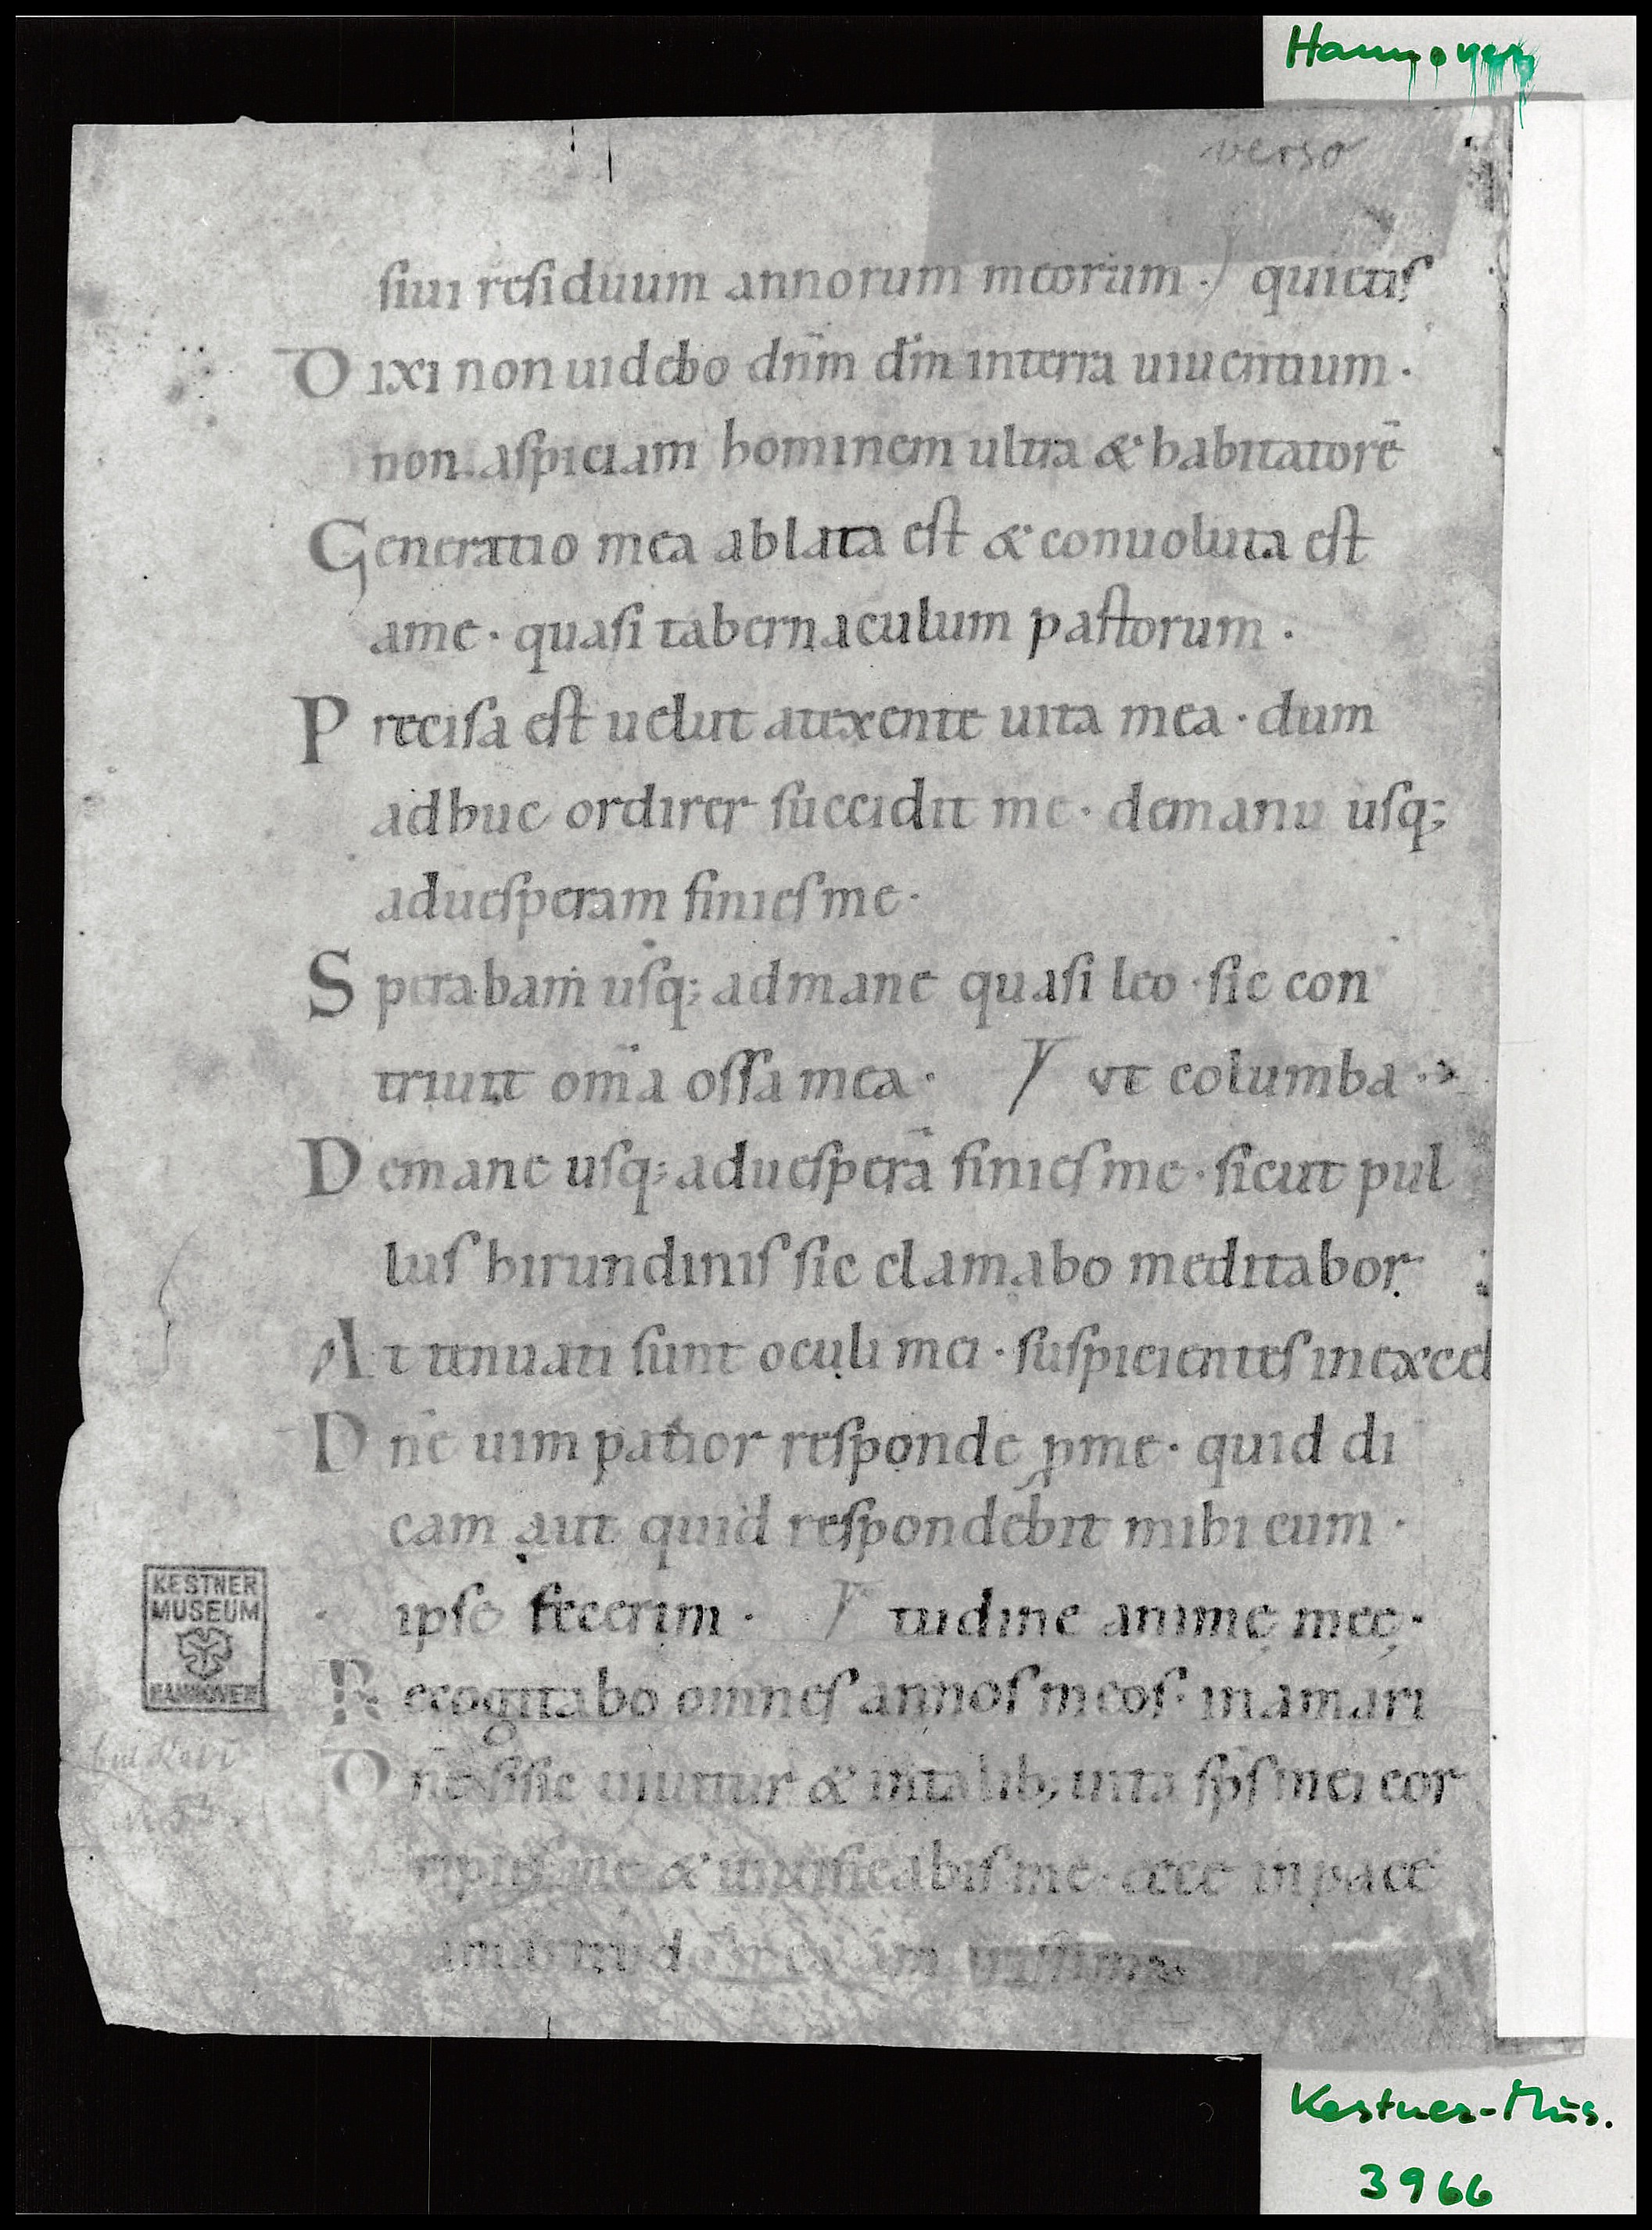 Hannover
verso
siui residuum annorum meorum · quietis
Dixi non uidebo dñm dm̄ interra uiuentium ·
non aspiciam hominem ultra & habitatorē
Generatio mea ablata est & conuoluta est
ame · quasi tabernaculum pastorum ·
Precisa est uelut atexente uita mea · dum
adhuc ordirer succidit me · demanu usq;
aduesperam finies me ·
Sperabam usq; admane quasi leo · sic con
triuit om̄a ossa mea · ut columba ·
Demane usq; aduesperā finies me · sicut pul
lus hirundinis sic clamabo meditabor
Attenuati sunt oculi mei · suspicientes inexcel
Dnē uim patior responde ꝓme · quid di
cam aut quid respondebit mihi cum ·
ipse fecerim · tudine animę meę ·
Recogitabo omnes annos meos · inamari
Dnē si sic uiuitur & intalib; uita sp̄s mei cor
ripies me & uiuificabis me · ecce inpace
KESTNER
MUSEUM
HANNOVER
Kestner-Mus.
3966